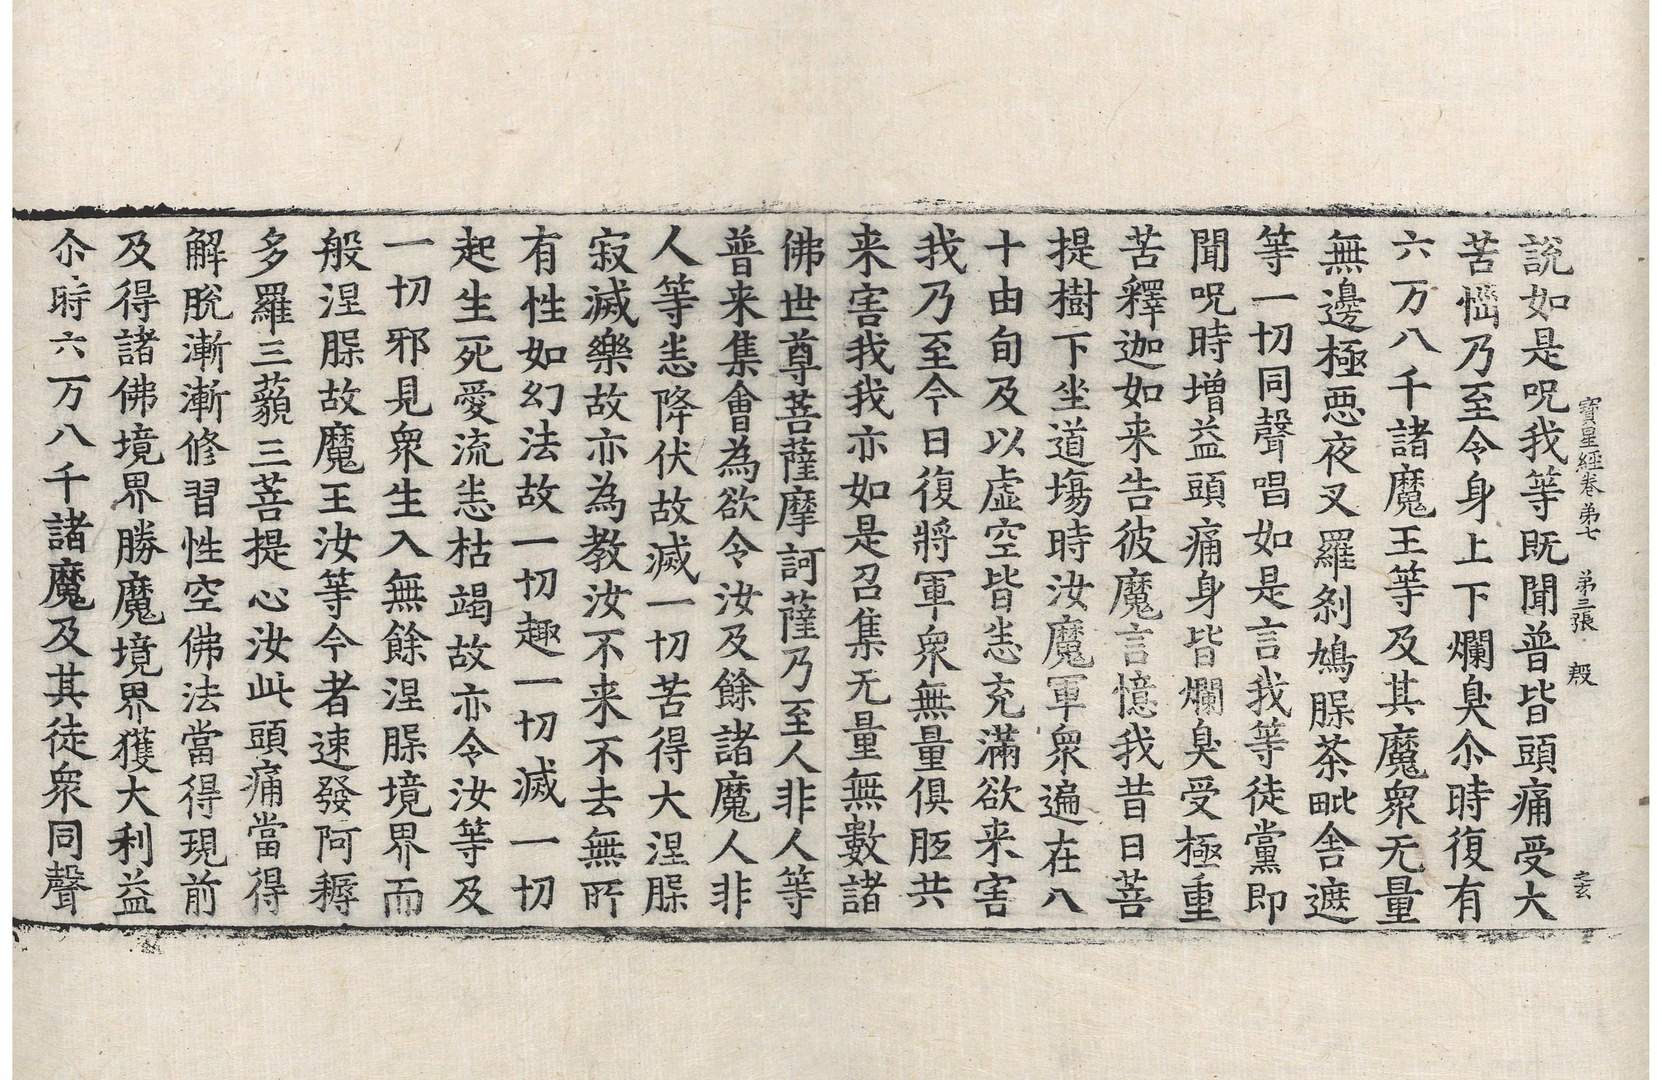 寶星經卷第七 第三張 殷 之玄
說如是呪我等既聞普皆頭痛受大
苦惱乃至令身上下爛臭尒時復有
六万八千諸魔王等及其魔衆无量
無邊極惡夜叉羅剎鳩脲茶毗舍遮
等一切同聲唱如是言我等徒黨即
聞呪時增益頭痛身皆爛臭受極重
苦釋迦如来告彼魔言憶我昔日菩
提樹下坐道場時汝魔軍衆遍在八
十由旬及以虛空皆悉充滿欲来害
我乃至今日復將軍衆無量俱胝共
来害我我亦如是召集无量無數諸
佛世尊菩薩摩訶薩乃至人非人等
普来集會為欲令汝及餘諸魔人非
人等悉降伏故滅一切苦得大涅脲
寂滅樂故亦為教汝不来不去無所
有性如幻法故一切趣一切滅一切
起生死愛流悉枯竭故亦令汝等及
一切邪見衆生入無餘涅脲境界而
般涅脲故魔王汝等今者速發阿耨
多羅三藐三菩提心汝此頭痛當得
解脫漸漸修習性空佛法當得現前
及得諸佛境界勝魔境界獲大利益
尒時六万八千諸魔及其徒衆同聲